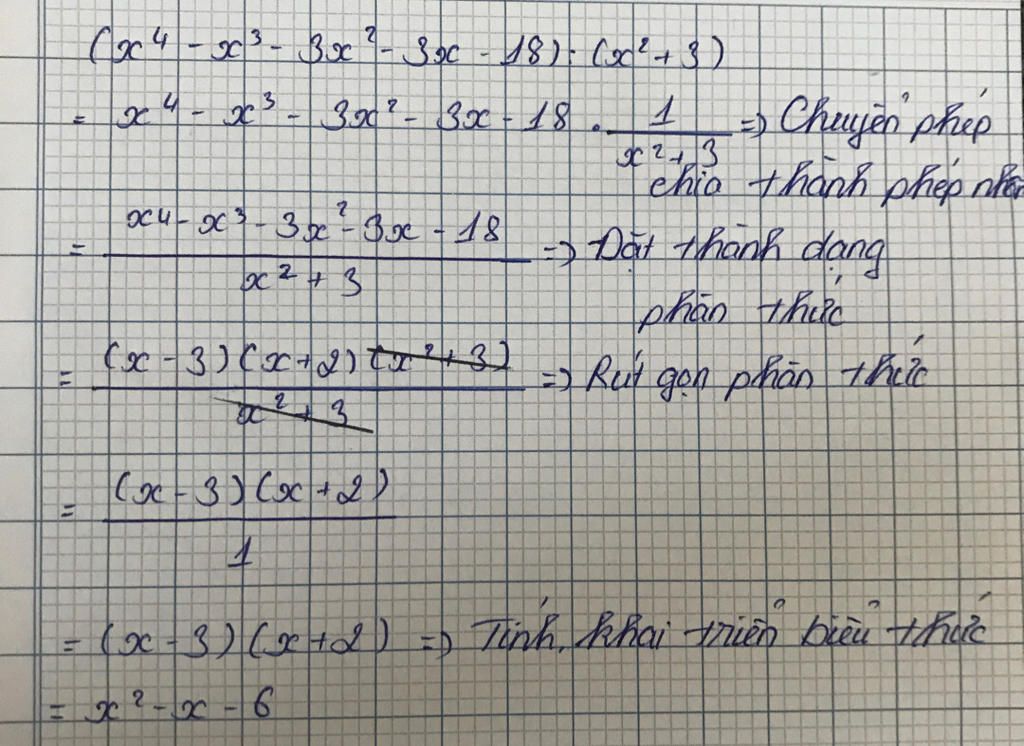 (x⁴ - x³ - 3x² - 3x - 18) : (x² + 3)
= x⁴ - x³ - 3x² - 3x - 18 . 1/(x² + 3) => Chuyển phép
chia thành phép nhân
= (x⁴ - x³ - 3x² - 3x - 18)/(x² + 3) => Đặt thành dạng
phân thức
= (x - 3)(x + 2)(x² + 3)/(x² + 3) => Rút gọn phân thức
= (x - 3)(x + 2)/1
= (x - 3)(x + 2) => Tính, khai triển biểu thức
= x² - x - 6